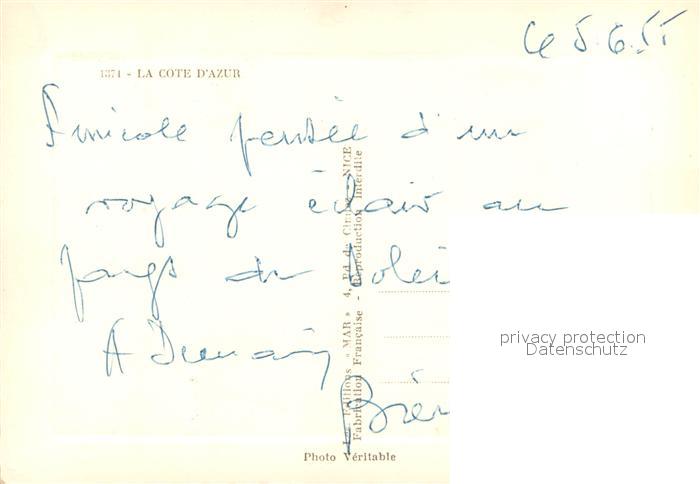 le 5.6.55
1371 - LA COTE D'AZUR
Amicale pensée d'un
voyage éclair au
pays du Solei
A Demain
Les Editions « MAR » 4, Bd. de Cimiez - NICE
Fabrication Française - Reproduction Interdite
privacy protection
Datenschutz
Photo Véritable